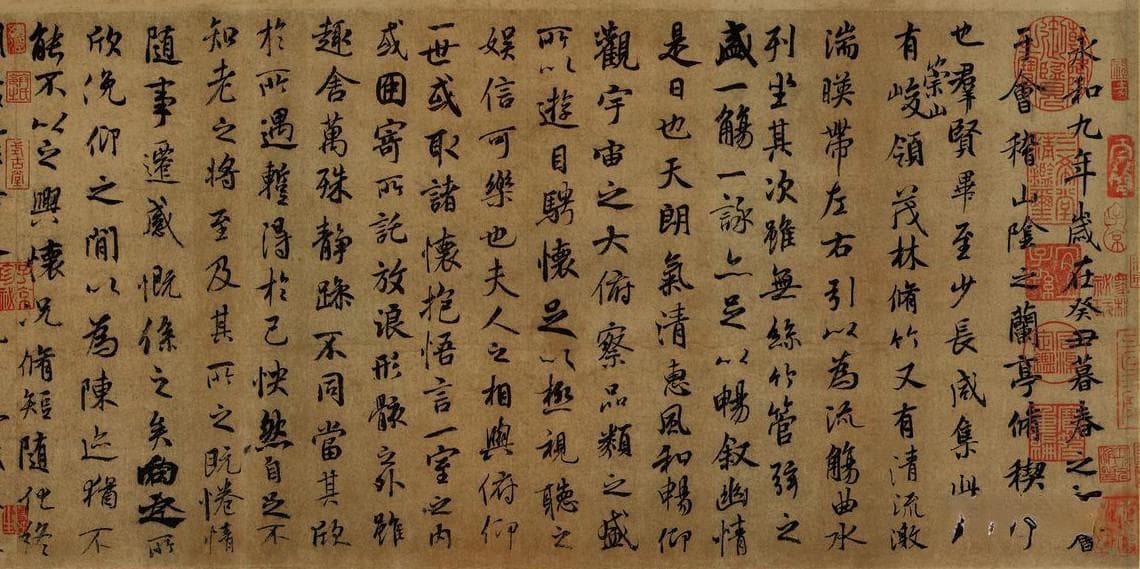 永和九年歲在癸丑暮春之會
于會稽山陰之蘭亭脩稧
也羣賢畢至少長咸集此
有崇山峻領茂林脩竹又有清流激
湍暎帶左右引以為流觴曲水
列坐其次雖無絲竹管弦之
盛一觴一詠亦足以暢叙幽情
是日也天朗氣清惠風和暢仰
觀宇宙之大俯察品類之盛
所以遊目騁懷足以極視聽之
娛信可樂也夫人之相與俯仰
一世或取諸懷抱悟言一室之內
或因寄所託放浪形骸之外雖
趣舍萬殊静躁不同當其欣
於所遇蹔得於己怏然自足不
知老之將至及其所之既惓情
随事遷感慨係之矣向之所
欣俛仰之閒以為陳迹猶不
能不以之興懷況脩短随化終